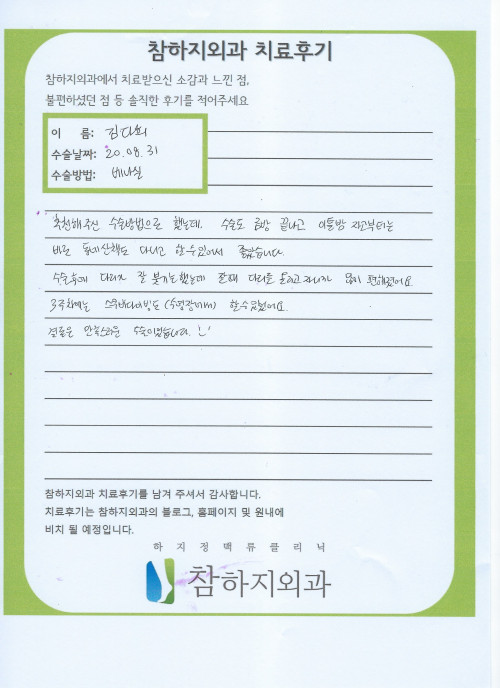 참하지외과 치료후기
참하지외과에서 치료받으신 소감과 느낀 점,
불편하셨던 점 등 솔직한 후기를 적어주세요
이 름: 김다희
수술날짜: 20.08.31
수술방법: 베나실
추천해주신 수술방법으로 했는데. 수술도 금방 끝나고 이틀밤 자고부터는
바로 동네산책도 다니고 할 수 있어서 좋았습니다.
수술후에 다리가 잘 붓기는 했는데 잘때 다리를 올리고 자니까 많이 편해졌어요
3주차에는 스쿠바다이빙도 (수영장에서) 할 수 있었어요.
결론은 만족스러운 수술이었습니다.
참하지외과 치료후기를 남겨 주셔서 감사합니다.
치료후기는 참하지외과의 블로그, 홈페이지 및 원내에
비치 될 예정입니다.
하지정맥류클리닉
참하지외과